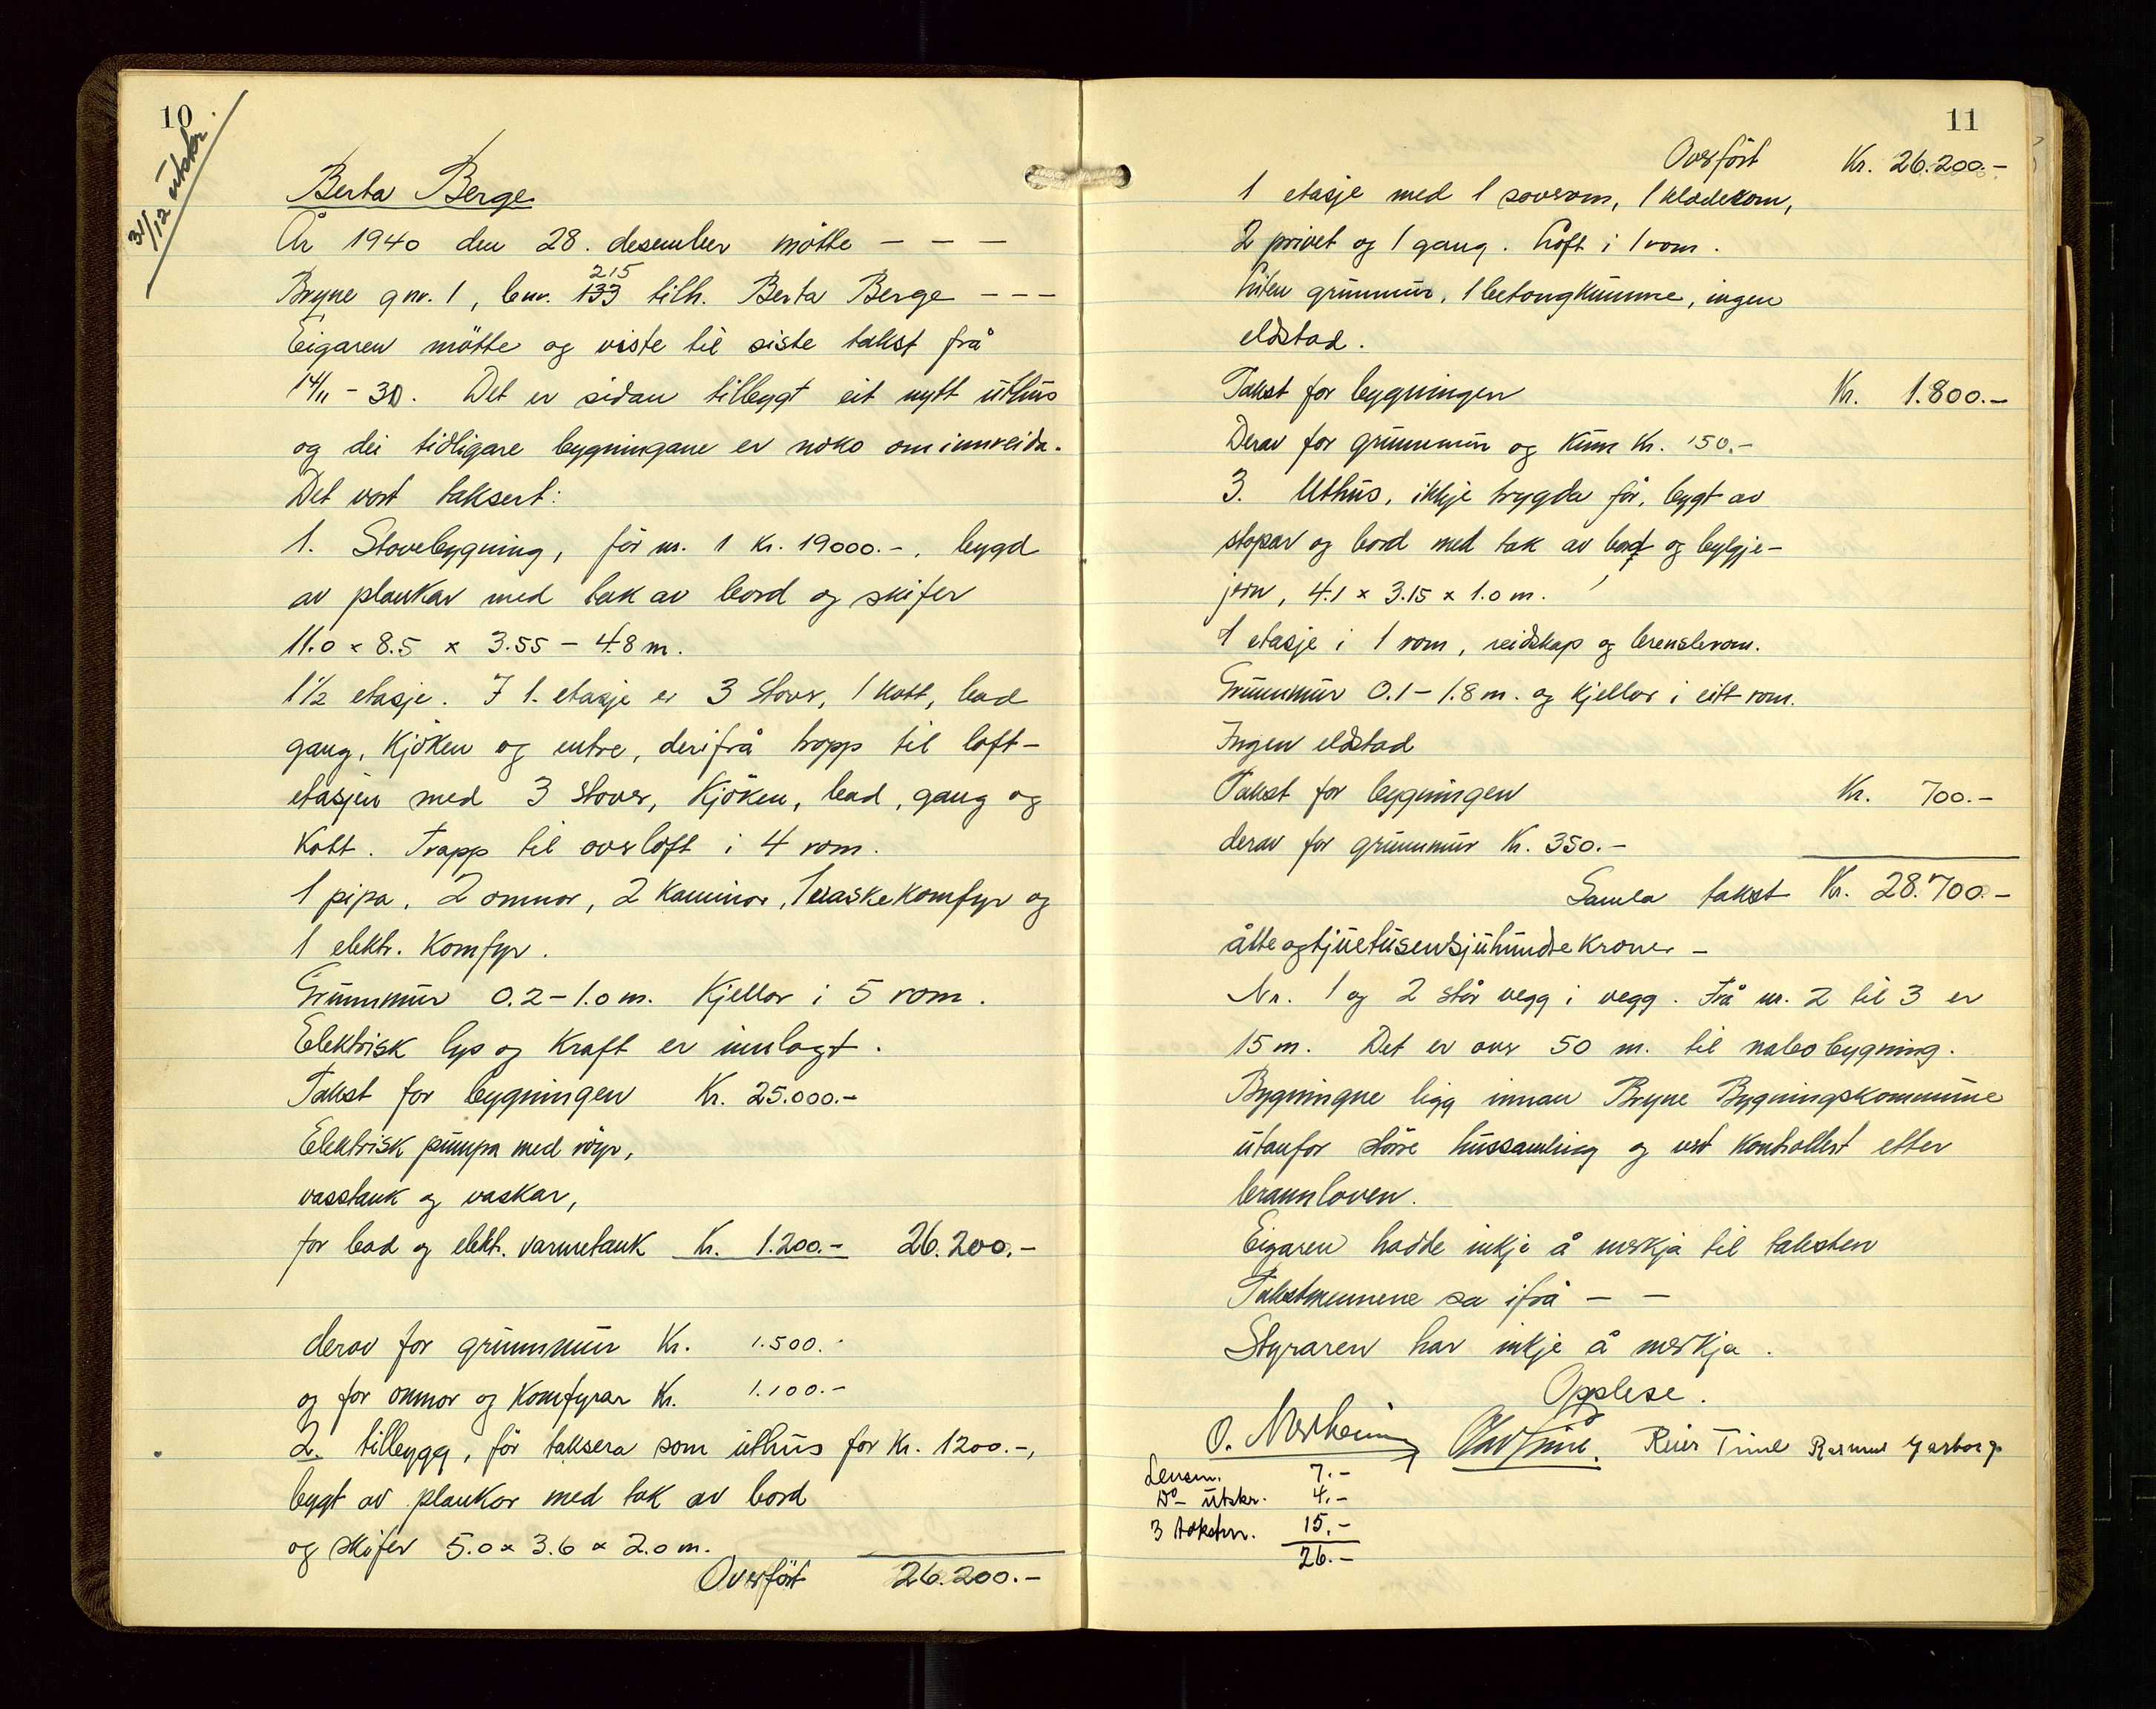 10
31/12 utskr.
Berta Berge
År 1940 den 28. desember møtte - - -
215
Bryne gnr. 1, bnr. 133 tilh. Berta Berge - - -
Eigaren møtte og viste til siste takst frå
14/11 - 30. Det er sidan tilbygt eit nytt uthus
og dei tidligare bygningane er noko ominnreida.
Det vart taksert:
1. Stovebygning, før nr. 1 Kr. 19000.-, bygd
av plankar med tak av bord og skifer
11.0 x 8.5 x 3.55 - 4.8 m.
1½ etasje. I 1. etasje er 3 stover, 1 kott, bad
gang, kjøken og entre, derifrå tropp til loft-
etasjen med 3 stover, kjøken, bad, gang og
kott. Trapp til overloft i 4 rom.
1 pipa, 2 omnar, 2 kaminar, 1 vaskekomfyr og
1 elektr. komfyr.
Grunnmur 0.2 - 1.0 m. Kjellar i 5 rom.
Elektrisk lys og kraft er innlagt.
Takst for bygningen Kr. 25.000.-
Elektrisk pumpa med røyr,
vasstank og vaskar,
for bad og elekt. varmetank Kr. 1.200.- 26.200.-
derav for grunnmur Kr. 1.500.-
og for omnar og komfyrar Kr. 1.100.-
2. tilbygg, før taksera som uthus for Kr. 1200.-,
bygt av plankar med tak av bord
og skifer 5.0 x 3.6 x 2.0 m.
Overført 26.200.-
11
Overført Kr. 26.200.-
1 etasje med 1 soverom, 1 klæderom,
2 privet og 1 gang. Loft i 1 rom.
Liten grunnmur, 1 betongkumme, ingen
eldstad.
Takst for bygningen Kr. 1.800.-
Derav for grunnmur og kum Kr. 150.-
3. Uthus, ikkje trygda før, bygt av
stopar og bord med tak av bord og bylgje-
jern, 4.1 x 3.15 x 1.0 m.
1 etasje i 1 rom, reidskap og brenslerom.
Grunnmur 0.1 - 1.8 m. og kjellar i eitt rom.
Ingen eldstad
Takst for bygningen Kr. 700.-
derav for grunnmur Kr. 350.-
Samla takst Kr. 28.700.-
åtteogtjuetusensjuhundre kroner -
Nr. 1 og 2 står vegg i vegg. Frå nr. 2 til 3 er
15 m. Det er over 50 m. til nabobygning.
Bygningne ligg innan Bryne Bygningskommune
utanfor større hussamling og vert kontrollert etter
brannloven.
Eigaren hadde inkje å merkja til taksten
Takstmennene sa ifrå - -
Styraren har inkje å merkja.
Opplese.
O. Nesheim Olav Time. Reier Time Rasmus Garborg
Lensm. 7.-
Do - utskr. 4.-
3 takstm. 15.-
26.-